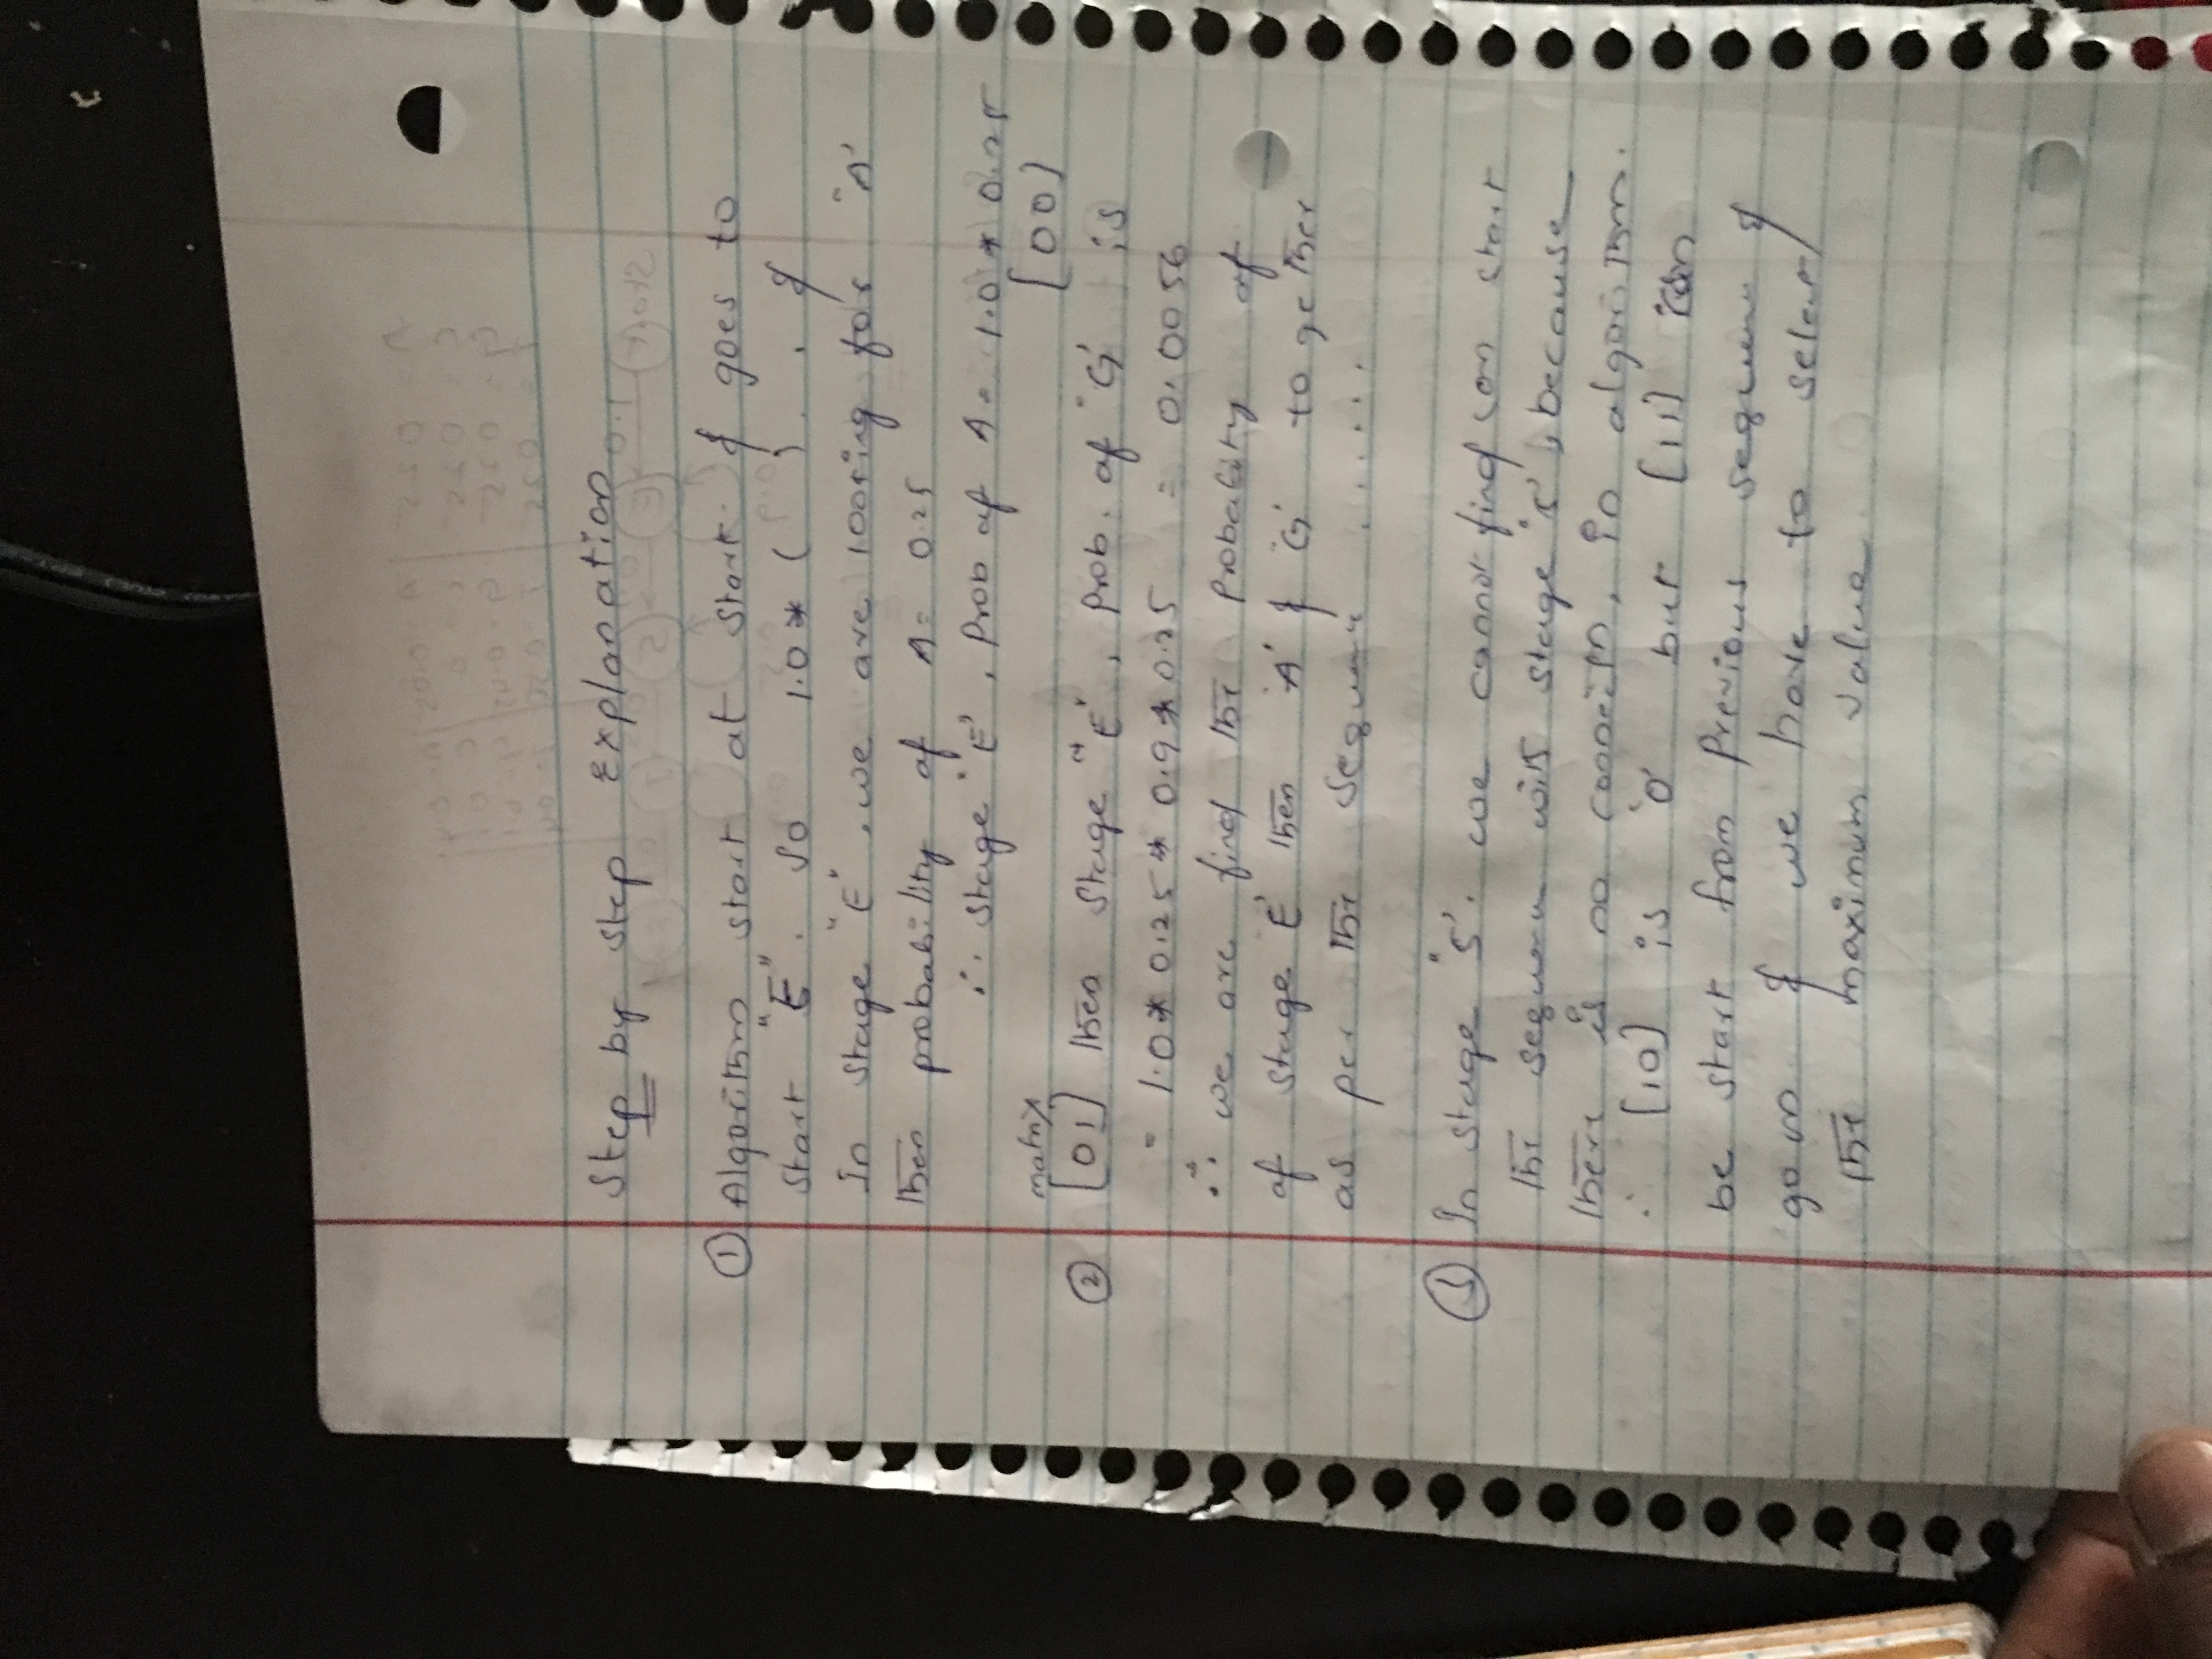 Step by step Explanation
① Algorithm start at start & goes to
start "E". so 1.0 * ( ) . . &
In stage "E", we are looking for "A'
then probability of A = 0.25
∴ stage 'E', Prob of A = 1.0 * 0.25
[00]
matrix
② [01] then stage "E", Prob. of "G' is
= 1.0 * 0.25 * 0.9 * 0.25 = 0.0056
∴ we are find the Probability of
of stage E' then 'A' & "G' together
as per the sequence ......
③ In stage "S'. we cannot find start
the sequence with stage 's', because
there is no in algorithm.
∴ [10] is '0' but [11] can
be start from Previous sequence &
go on & we have to select
the maximum value
A = 0.25 A = 0.05
C = 0.25 C = 0
G = 0.25
T = 0.25
Start 1.0 E S
0.9